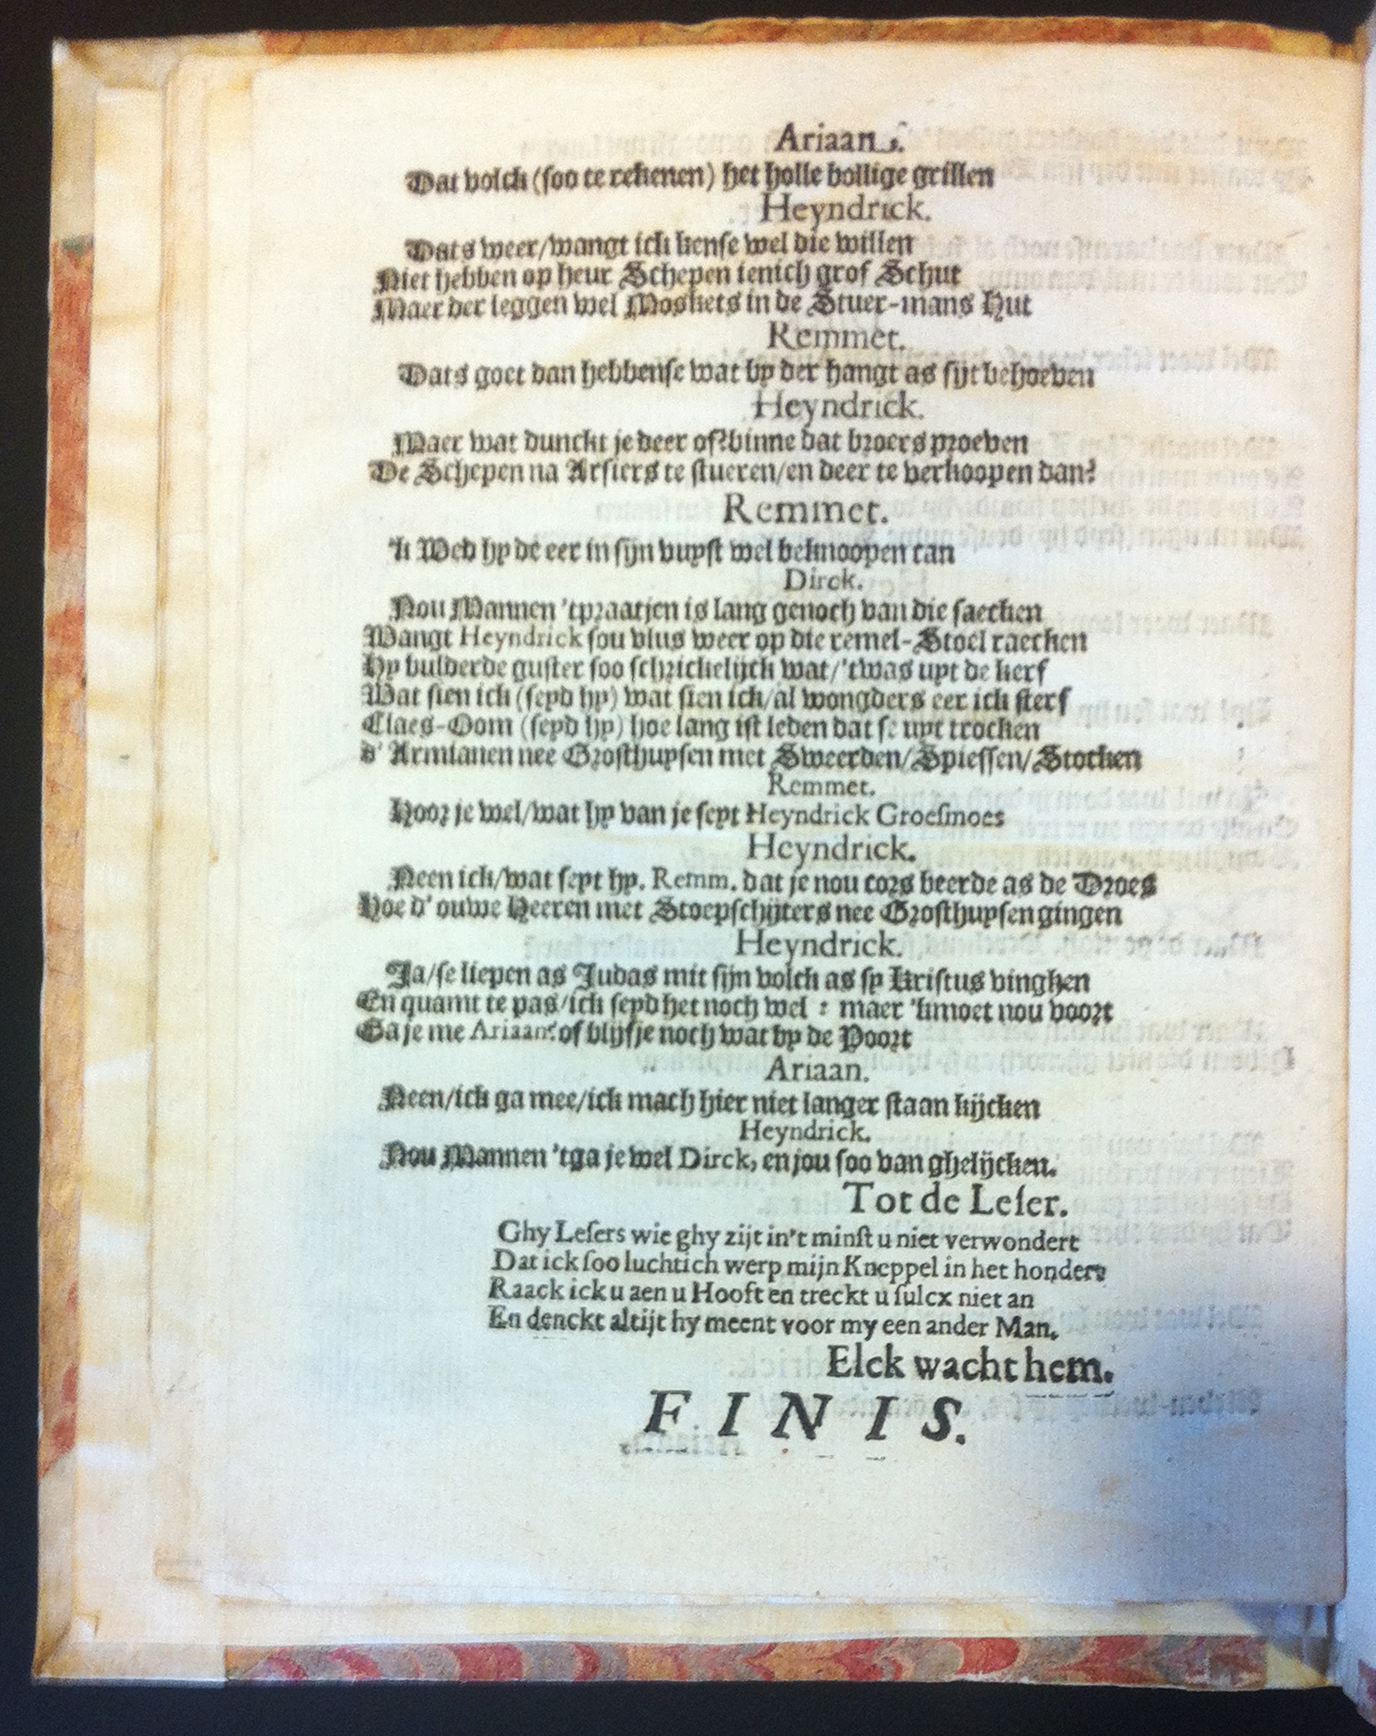 Ariaan.
Dat volck (soo te rekenen) het holle bollige grillen
Heyndrick.
Dats weer/wangt ick kense wel die willen
Niet hebben op heur Schepen ienich grof Schut
Maer der leggen wel Moskets in de Stuer-mans Hut
Remmet.
Dats goet dan hebbense wat by der hangt as sijt behoeven
Heyndrick.
Maer wat dunckt je deer of? binne dat broers proeven
De Schepen na Arsiers te stueren/en deer te verkoopen dan?
Remmet.
'k Wed hy de eer in sijn vuyst wel beknoopen can
Dirck.
Nou Mannen 'tpraatjen is lang genoch van die saecken
Wangt Heyndrick sou vlus weer op die remel-Stoel raecken
Hy bulderde guster soo schrickelijck wat/'twas uyt de kerf
Wat sien ick (seyd hy) wat sien ick/al wongders eer ick sterf
Claes-Oom (seyd hy) hoe lang ist leden dat se uyt trocken
d' Armianen nee Grosthuysen met Sweerden/Spiessen/Stocken
Remmet.
Hoor je wel/wat hy van je seyt Heyndrick Groesmoes
Heyndrick.
Neen ick/wat seyt hy. Remm. dat je nou cors beerde as de Droes
Hoe d' ouwe Heeren met Stoepschijters nee Grosthuysen gingen
Heyndrick.
Ja/se liepen as Judas mit sijn volck as sy Kristus vinghen
En quamt te pas/ick seyd het noch wel : maer 'kmoet nou voort
Ga je me Ariaan? of blijf je noch wat by de Poort
Ariaan.
Neen/ick ga mee/ick mach hier niet langer staan kijcken
Heyndrick.
Nou Mannen 'tga je wel Dirck, en jou soo van ghelijcken.
Tot de Leser.
Ghy Lesers wie ghy zijt in't minst u niet verwondert
Dat ick soo luchtich werp mijn Kneppel in het hondert
Raack ick u aen u Hooft en treckt u sulcx niet an
En denckt altijt hy meent voor my een ander Man.
Elck wacht hem.
FINIS.